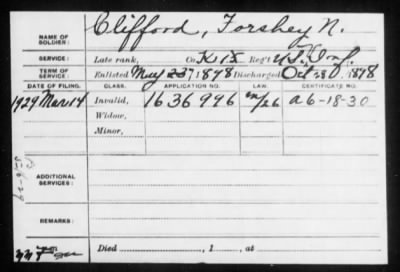 NAME OF SOLDIER: Clifford, Forshey N.
SERVICE: Late rank, Co. K 15 Reg't U.S. Inf.
TERM OF SERVICE: Enlisted May 1898 Discharged Oct 1898
DATE OF FILING. CLASS. APPLICATION NO. LAW. CERTIFICATE NO.
1929 Mar 14 Invalid, 1636996 a 6-18-30
Widow,
Minor,
ADDITIONAL SERVICES:
REMARKS:
Died , 1 , at